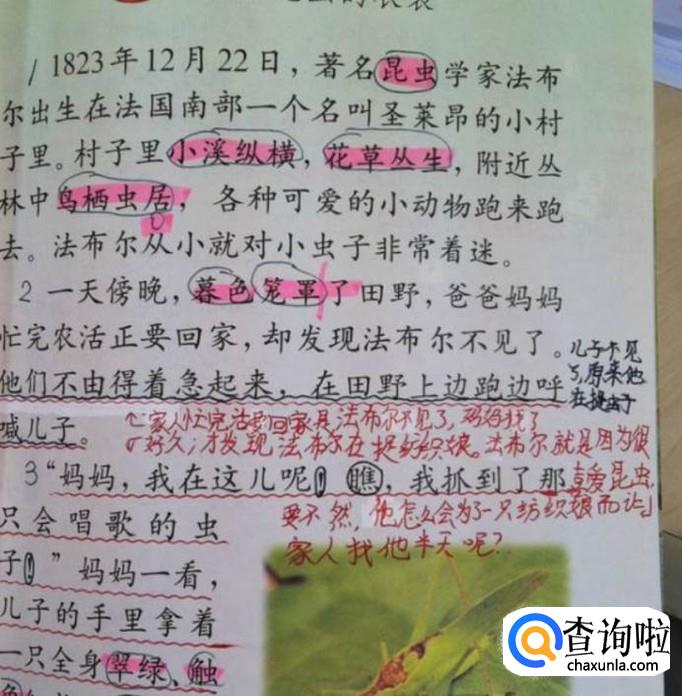 1823年12月22日，著名昆虫学家法布
尔出生在法国南部一个名叫圣莱昂的小村
子里。村子里小溪纵横，花草丛生，附近丛
林中鸟栖虫居，各种可爱的小动物跑来跑
去。法布尔从小就对小虫子非常着迷。
2 一天傍晚，暮色笼罩了田野，爸爸妈妈
忙完农活正要回家，却发现法布尔不见了。
儿子不见
了，原来他
在捉虫子
他们不由得着急起来，在田野上边跑边呼
喊儿子。
家人忙完活要回家是，法布尔不见了，妈妈找了
好久，才发现法布尔在捉纺织娘。法布尔就是因为很
喜爱昆虫，
要不然，他怎么会为了一只纺织娘而让
家人找他半天呢？
3 “妈妈，我在这儿呢！瞧，我抓到了那
只会唱歌的虫
子！”妈妈一看，
儿子的手里拿着
一只全身翠绿、触
查询啦
chaxunla.com